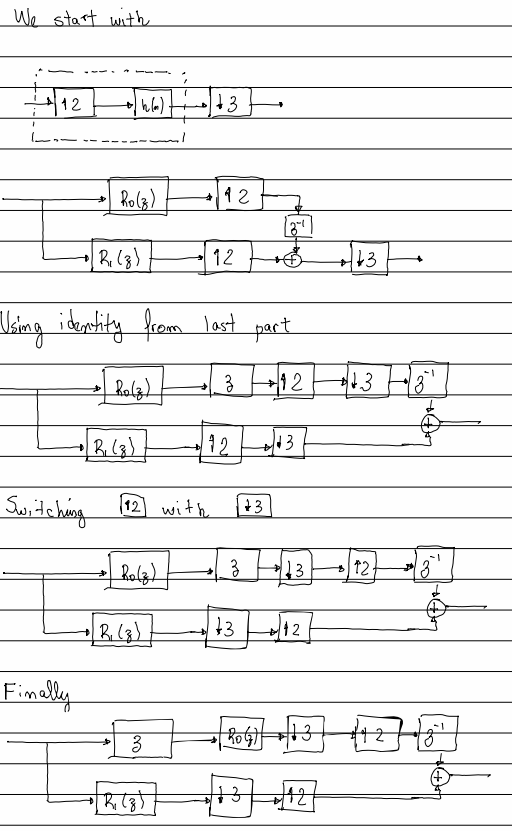 We start with
↑2 h(n) ↓3
R₀(z) ↑2
z⁻¹
R₁(z) ↑2 + ↓3
Using identity from last part
R₀(z) z ↑2 ↓3 z⁻¹
+
R₁(z) ↑2 ↓3
Switching ↑2 with ↓3
R₀(z) z ↓3 ↑2 z⁻¹
+
R₁(z) ↓3 ↑2
Finally
z R₀(z) ↓3 ↑2 z⁻¹
+
R₁(z) ↓3 ↑2